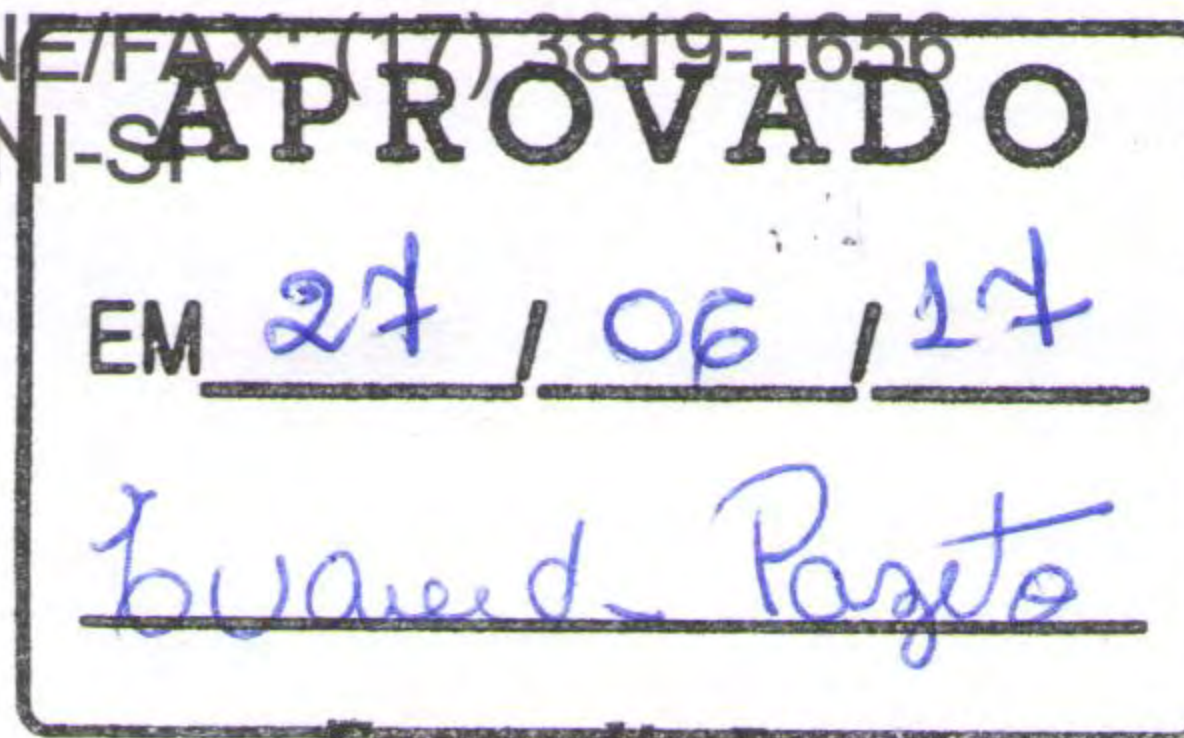 NE/FAX: (17) 3819-1656
NI-SP
APROVADO
EM 27 / 06 / 17
Pazeto